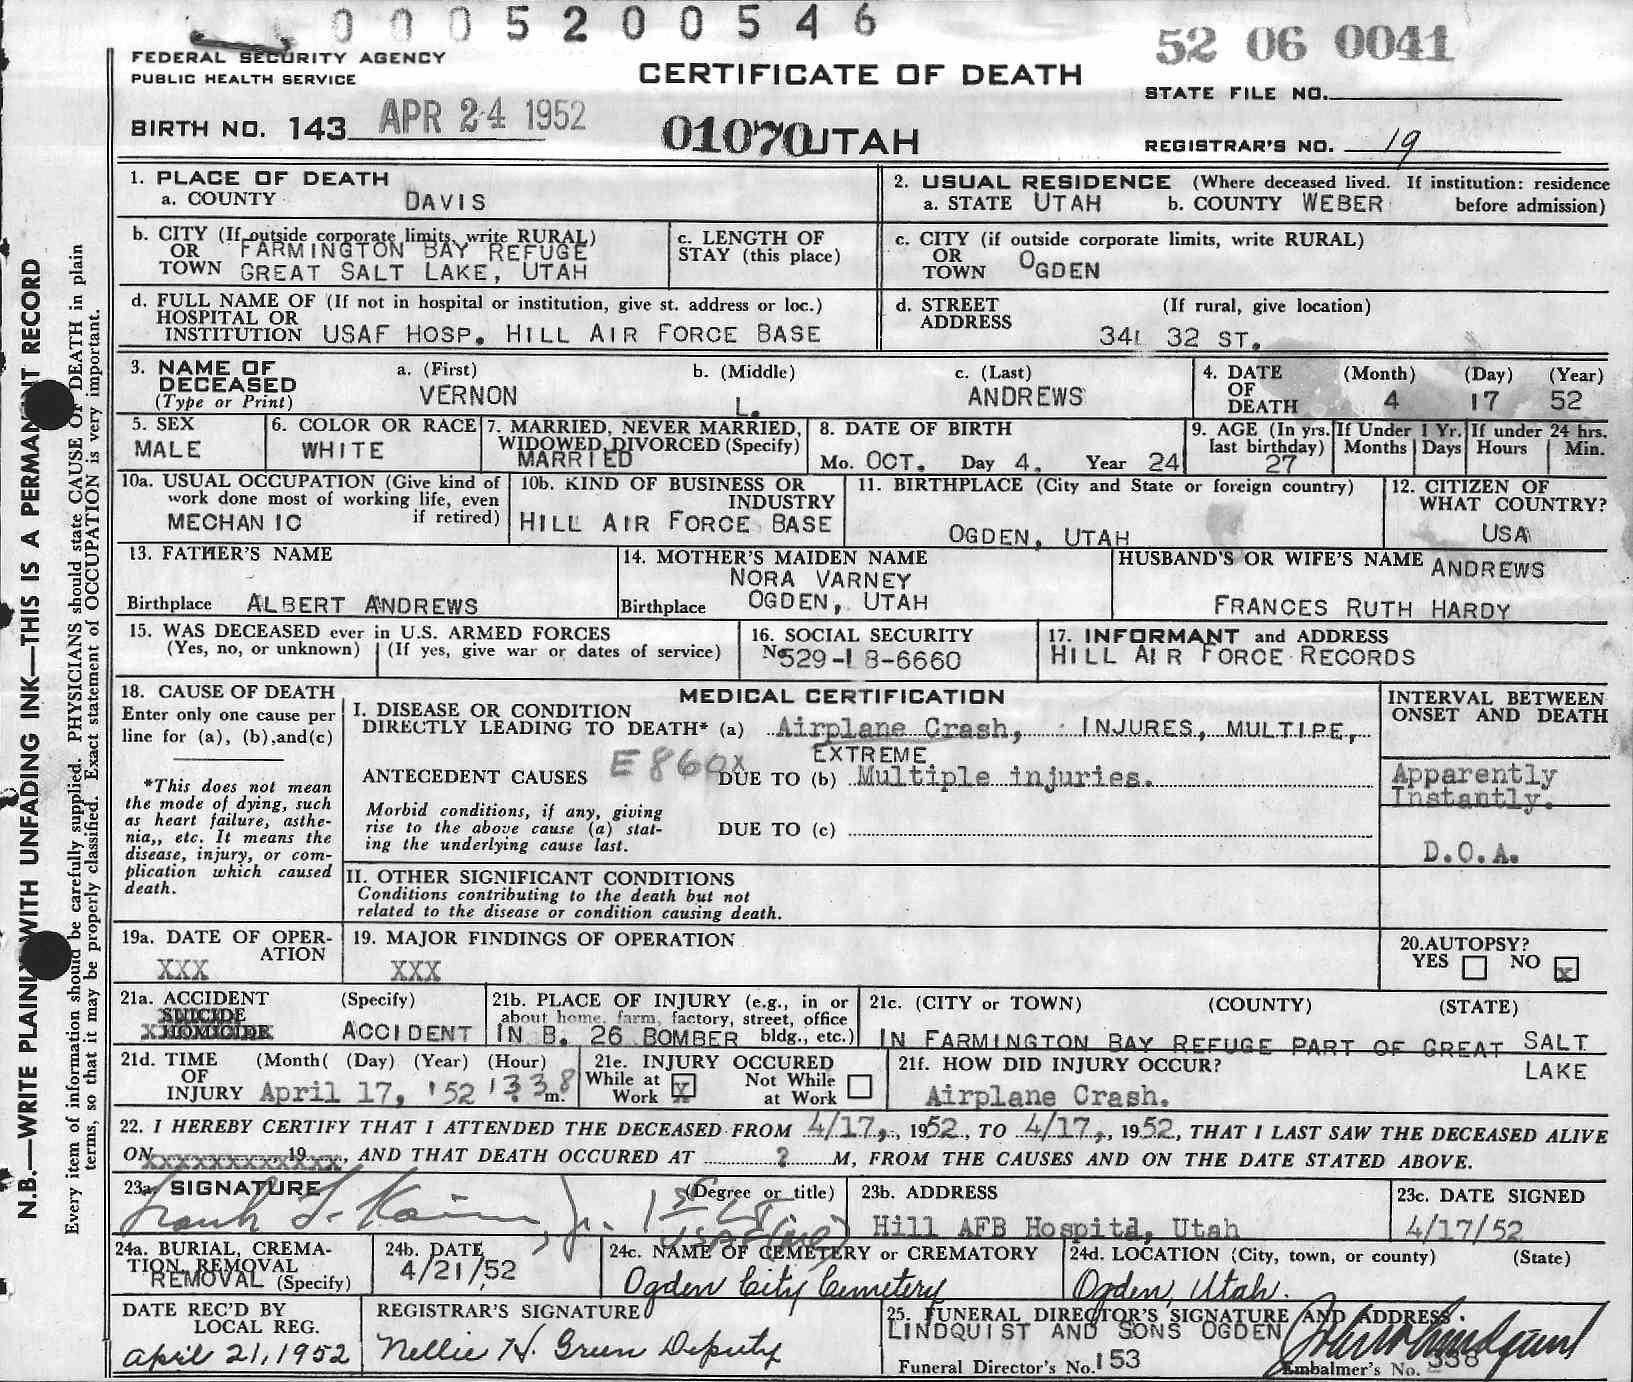 0005200546
52 06 0041
FEDERAL SECURITY AGENCY
PUBLIC HEALTH SERVICE
CERTIFICATE OF DEATH
STATE FILE NO.
BIRTH NO. 143 APR 24 1952
01070 UTAH
REGISTRAR'S NO. 19
N.B.—WRITE PLAINLY WITH UNFADING INK—THIS IS A PERMANENT RECORD
Every item of information should be carefully supplied. PHYSICIANS should state CAUSE OF DEATH in plain
terms, so that it may be properly classified. Exact statement of OCCUPATION is very important.
1. PLACE OF DEATH
a. COUNTY DAVIS
2. USUAL RESIDENCE (Where deceased lived. If institution: residence
a. STATE UTAH b. COUNTY WEBER before admission)
b. CITY (If outside corporate limits, write RURAL)
OR FARMINGTON BAY REFUGE
TOWN GREAT SALT LAKE, UTAH
c. LENGTH OF
STAY (this place)
c. CITY (if outside corporate limits, write RURAL)
OR
TOWN OGDEN
d. FULL NAME OF (If not in hospital or institution, give st. address or loc.)
HOSPITAL OR
INSTITUTION USAF HOSP. HILL AIR FORCE BASE
d. STREET (If rural, give location)
ADDRESS 341 32 ST.
3. NAME OF a. (First) b. (Middle) c. (Last)
DECEASED VERNON L. ANDREWS
(Type or Print)
4. DATE (Month) (Day) (Year)
OF
DEATH 4 17 52
5. SEX
MALE
6. COLOR OR RACE
WHITE
7. MARRIED, NEVER MARRIED,
WIDOWED, DIVORCED (Specify)
MARRIED
8. DATE OF BIRTH
Mo. OCT. Day 4. Year 24
9. AGE (In yrs. If Under 1 Yr. If under 24 hrs.
last birthday) Months Days Hours Min.
27
10a. USUAL OCCUPATION (Give kind of
work done most of working life, even
MECHANIC if retired)
10b. KIND OF BUSINESS OR
INDUSTRY
HILL AIR FORCE BASE
11. BIRTHPLACE (City and State or foreign country)
OGDEN, UTAH
12. CITIZEN OF
WHAT COUNTRY?
USA
13. FATHER'S NAME
Birthplace ALBERT ANDREWS
14. MOTHER'S MAIDEN NAME
NORA VARNEY
Birthplace OGDEN, UTAH
HUSBAND'S OR WIFE'S NAME ANDREWS
FRANCES RUTH HARDY
15. WAS DECEASED ever in U.S. ARMED FORCES
(Yes, no, or unknown) (If yes, give war or dates of service)
16. SOCIAL SECURITY
No 529-18-6660
17. INFORMANT and ADDRESS
HILL AIR FORCE RECORDS
18. CAUSE OF DEATH
Enter only one cause per
line for (a), (b), and (c)
*This does not mean
the mode of dying, such
as heart failure, asthe-
nia,, etc. It means the
disease, injury, or com-
plication which caused
death.
MEDICAL CERTIFICATION
I. DISEASE OR CONDITION
DIRECTLY LEADING TO DEATH* (a) Airplane Crash, INJURES, MULTIPE,
EXTREME
ANTECEDENT CAUSES E860x DUE TO (b) Multiple injuries.
Morbid conditions, if any, giving
rise to the above cause (a) stat-
ing the underlying cause last.
DUE TO (c)
II. OTHER SIGNIFICANT CONDITIONS
Conditions contributing to the death but not
related to the disease or condition causing death.
INTERVAL BETWEEN
ONSET AND DEATH
Apparently
Instantly.
D.O.A.
19a. DATE OF OPER-
ATION
XXX
19. MAJOR FINDINGS OF OPERATION
XXX
20. AUTOPSY?
YES NO x
21a. ACCIDENT (Specify)
SUICIDE
HOMICIDE ACCIDENT
21b. PLACE OF INJURY (e.g., in or
about home, farm, factory, street, office
IN B. 26 BOMBER bldg., etc.)
21c. (CITY or TOWN) (COUNTY) (STATE)
IN FARMINGTON BAY REFUGE PART OF GREAT SALT
LAKE
21d. TIME (Month( (Day) (Year) (Hour)
OF
INJURY April 17, '52 1338 m.
21e. INJURY OCCURED
While at Work x Not While at Work
21f. HOW DID INJURY OCCUR?
Airplane Crash.
22. I HEREBY CERTIFY THAT I ATTENDED THE DECEASED FROM 4/17, 1952, TO 4/17, 1952, THAT I LAST SAW THE DECEASED ALIVE
ON XXXXXXXXXX, 19XX, AND THAT DEATH OCCURED AT ? M, FROM THE CAUSES AND ON THE DATE STATED ABOVE.
23a. SIGNATURE (Degree or title)
Frank Jr. 1st Lt.
USAF (MC)
23b. ADDRESS
Hill AFB Hospital, Utah
23c. DATE SIGNED
4/17/52
24a. BURIAL, CREMA-
TION, REMOVAL
REMOVAL (Specify)
24b. DATE
4/21/52
24c. NAME OF CEMETERY or CREMATORY
Ogden City Cemetery
24d. LOCATION (City, town, or county) (State)
Ogden, Utah.
DATE REC'D BY
LOCAL REG.
April 21, 1952
REGISTRAR'S SIGNATURE
Nellie H. Green Deputy
25. FUNERAL DIRECTOR'S SIGNATURE AND ADDRESS.
LINDQUIST AND SONS OGDEN
Funeral Director's No. 153
Embalmer's No. 338